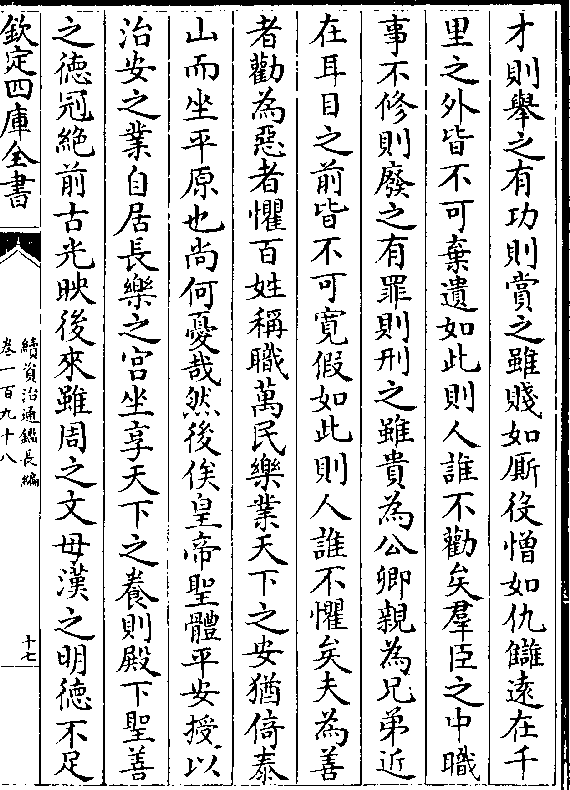 才則舉之有功則賞之雖賤如厮役憎如仇讎逺在千
里之外皆不可棄遺如此則人誰不勸矣羣臣之中職
事不修則廢之有罪則刑之雖貴為公卿親為兄弟近
在耳目之前皆不可寛假如此則人誰不懼矣夫為善
者勸為惡者懼百姓稱職萬民樂業天下之安猶倚泰
山而坐平原也尚何憂哉然後俟皇帝聖體平安授以
治安之業自居長樂之宫坐享天下之養則殿下聖善
之徳冠絶前古光映後來雖周之文母漢之明徳不足
欽定四庫全書
續資治通鑑長編
卷一百九十八
十七